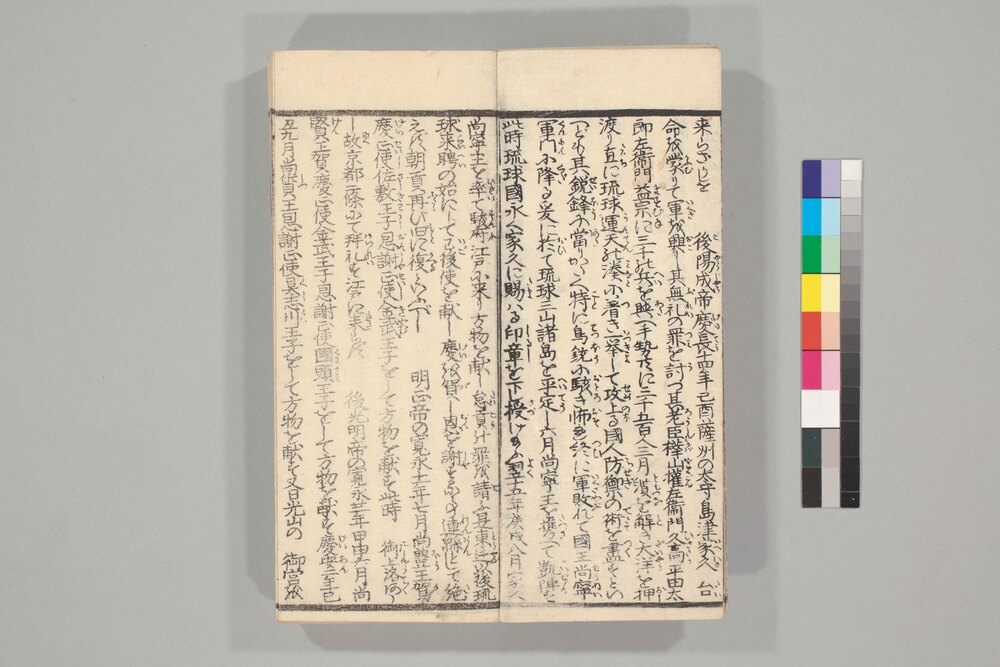 来らざしを　後陽成帝慶長十四年己酉薩州の太守島津家久　台
命を蒙りて軍を興し其無礼の罪を討つ其老臣樺山権左衛門久高平田太
郎左衛門益宗に三千の兵を与へ手勢共に三千五百人三月纜を解き大洋を押
渡り直に琉球運天の湊に着き一挙して攻上る国人防禦の術を尽すとい
へども其鋭鋒に当りがたく特に鳥銃に駭き師終に軍敗れて国王尚寧
軍門に降る爰に於て琉球三山諸島を平定し六月尚寧王を携へて凱陣す
此時琉球国永く家久に賜はる印章を下し授けらる翌十五年庚戌八月家久
尚寧王を率て駿府江戸に来り方物を献し怠貢の罪を請ふ是東に後琉
球来聘の始にして後使を献し慶を賀し恩を謝するの連綿として絶
えず朝貢再び旧に復りぬ　明正帝の寛永十一年七月尚豊王賀
慶正使佐敷王子恩謝正使金武王子をして方物を献す此時　御上洛あり
し故京都二條にて拝礼を江戸に来らず　後光明帝の寛永廿一年甲申六月尚
賢王賀慶正使金武王子恩謝正使国頭王子をして方物を献ず慶安二年己
丑九月尚質王恩謝正使具志川王子をして方物を献ず又日光山の　御宮を